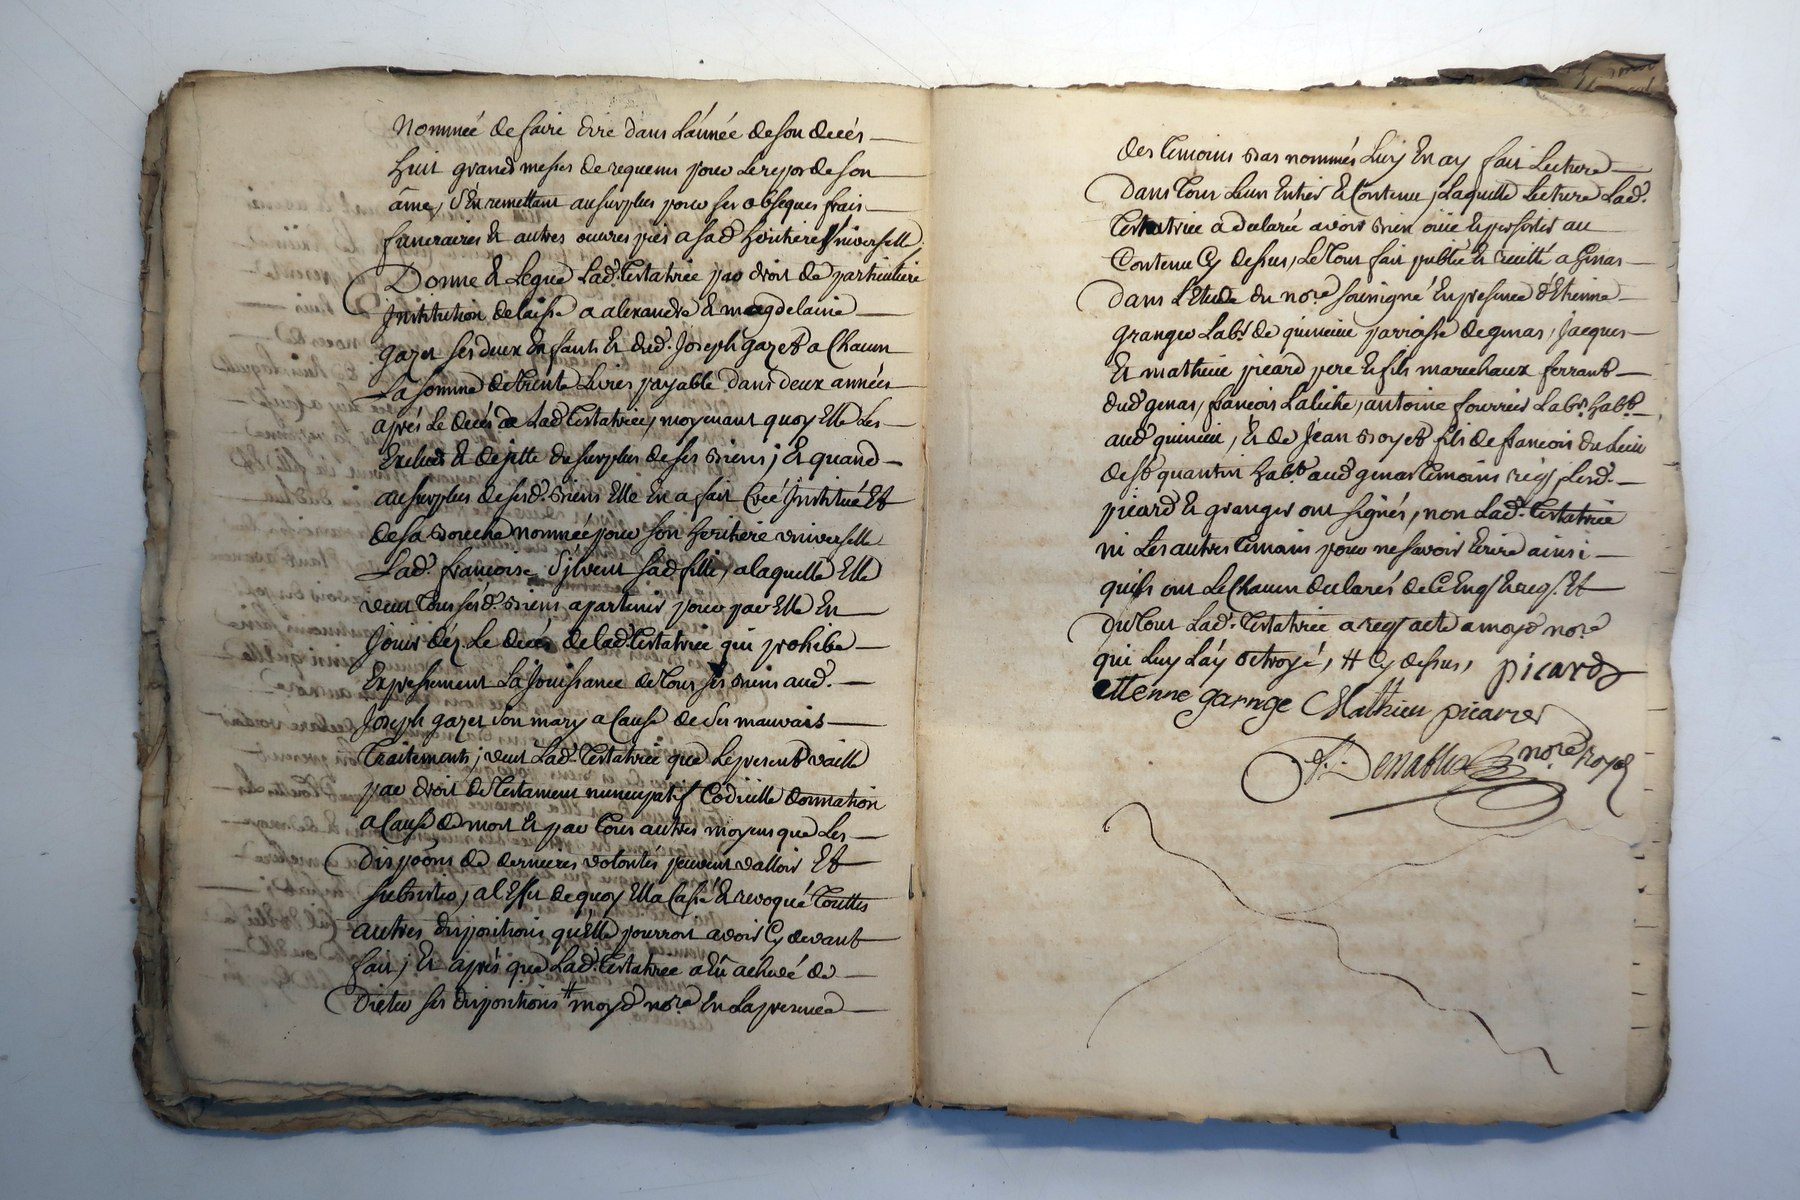 Nommée de faire dire dans l'année de son décés
huit grandes messes de requiems pour le repos de son
âme, s'en remettant au surplus pour ses obseques frais
funeraires et autres œuvres pies a sad. heritiere universelle,
Donne et Legue Lad. Testatrice par droit de particuliere
Institution delaisse a alexandre et magdelaine
gazet ses deux Enfants et dud. Joseph gazet a Chacun
La somme de trente Livres payable dans deux années
aprés Le decés de Lad. Testatrice, moyenant quoy Elle Les
Exclud et dejette du surplus de ses biens ; Et quand
au surplus de sesd. biens Elle En a fait Creé Institué Et
de sa bouche nommée pour son heritiere universelle
Lad. francoise Sylvent sad. fille, a laquelle Elle
veut tous sesd. biens apartenir pour par Elle En
Jouir déz Le decés de lad. Testatrice qui prohibe
Expressement La Jouissance de tous ses biens aud.
Joseph gazet son mary a Cause de ses mauvais
traitements ; veut Lad. Testatrice que Le present vaille
par droit de Testament nuncupatif Codicille donnation
a Cause de mort et par tous autres moyens que Les
dispoõns de dernieres volontés peuvent valloir Et
subsister, a l'Effet de quoy Ella Cassé et revoqué touttes
autres dispositions qu'Elle pourroit avoir Cy devant
fait ; Et aprés que Lad. Testatrice a Eü achevé de
Dicter ses dispositions # moyd. nore. En la presence
des temoins bas nommés Luy En ay fait Lecture
Dans tout Leur Entier et Contenu, Laquelle Lecture Lad.
Testatrice a declaré avoir bien oüie et persister au
Contenu Cy dessus, Le tout fait publié et recitté a Genas
dans L'Etude du nore. soussigné En presence d'Etienne
granger Labr. de quincieu parroisse de genas, Jacques
Et mathieu picard pere et fils marechaux ferrant
dud. genas, francois Laliche, antoine fourrier Labrs. habts.
aud. quincieu, et de Jean boyet fils de francois du Lieu
de st. quantin habt. aud. genas temoins reqs. Lesd.
picard et granger ont signés, non Lad. Testatrice
ni Les autres temoins pour ne savoir Ecrire ainsi
qu'ils ont Le Chacun declarés de Ce Enqs. Et reqs. Et
du tout Lad. Testatrice a reqs. acte a moyd. nore.
qui Luy L'ay octroyé, # Cy dessus, picard
ettenne garnge Mathieu picarre
Desrablus nore. Royal